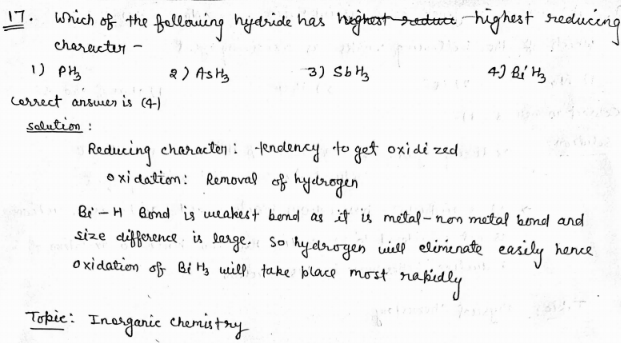 17. Which of the following hydride has highest reduci highest reducing
character -
1) PH₃ 2) AsH₃ 3) SbH₃ 4) BiH₃
Correct answer is (4)
Solution :
Reducing character : tendency to get oxidized
oxidation : Removal of hydrogen
Bi - H Bond is weakest bond as it is metal - non metal bond and
size difference is large. So hydrogen will eliminate easily hence
oxidation of BiH₃ will take place most rapidly
Topic : Inorganic chemistry